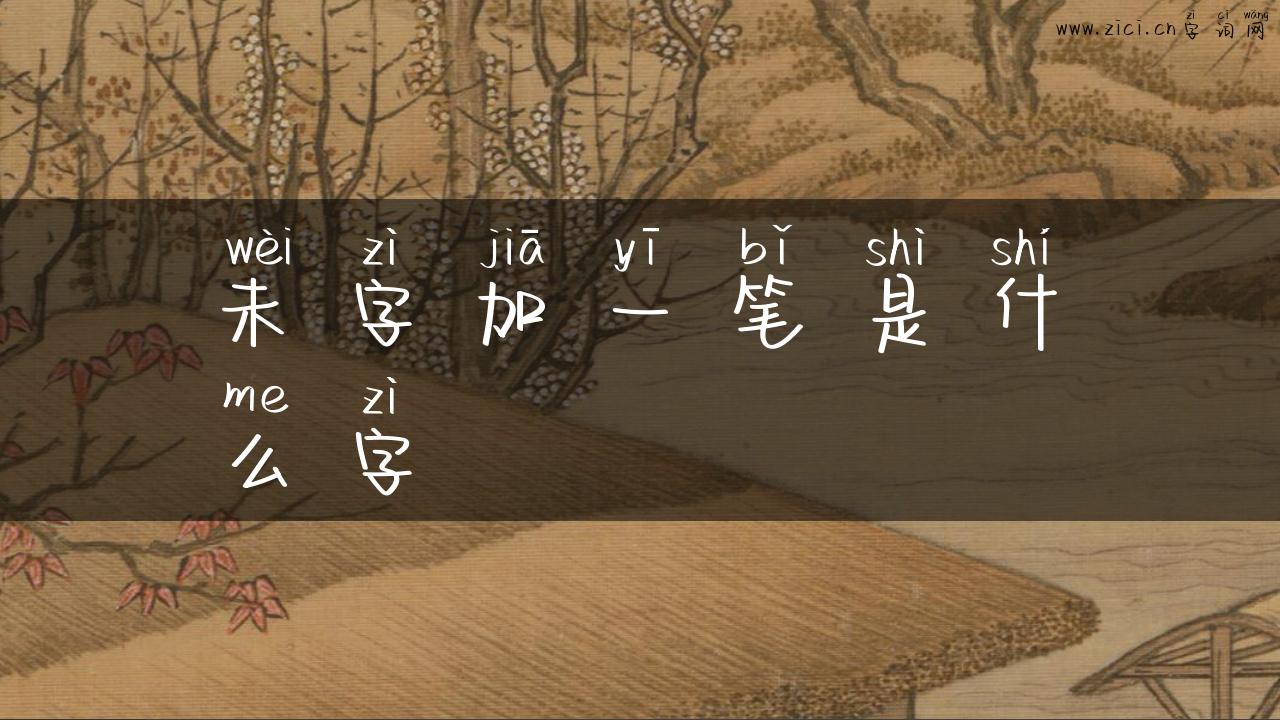 zì cí wǎng
www.zici.cn字词网
wèi zì jiā yī bǐ shì shí
未字加一笔是什
me zì
么字